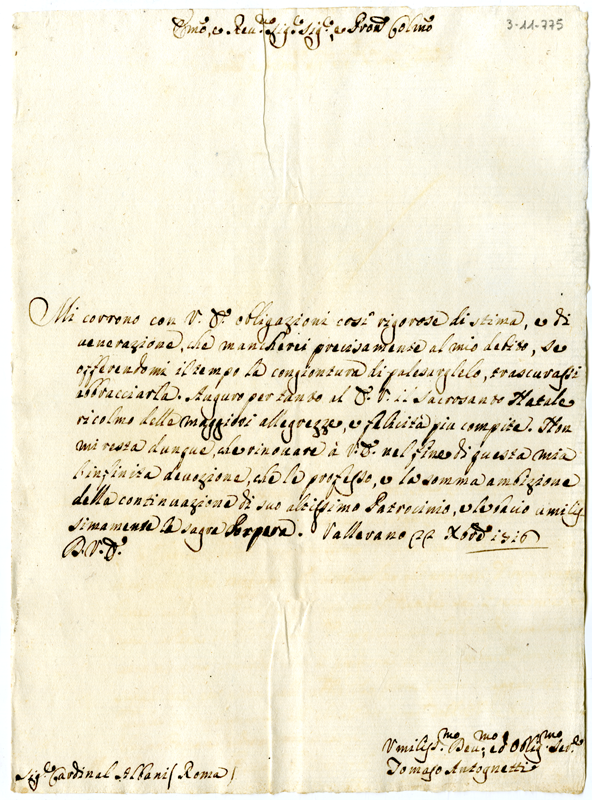 3-11-775
Emo, e Reu.mo Sig.re Sig.re, e Pron Colmo
Mi corrono con V. Em.a obligazioni così rigorose di stima, e di
venerazione, che mancherei precisamente al mio debito, se
offerendomi il tempo la congiontura di palesarglelo, trascurassi
abbracciarla. Auguro per tanto al E. V. il Sacrosanto Natale
ricolmo delle maggiori allegrezze, e felicità più compite. Non
mi resta dunque, che rinouare à V. Em.a nel fine di questa mia
l'infinita deuozione, che le professo, e la somma ambizione
della continuazione di suo altissimo Patrocinio, e le bacio umilis-
simamente la sagra Porpora. Vallerano 22 Xbre 1716
D. V. Em.a
Vmiliss.mo Deu.mo, ed Oblig.mo Ser.re
Sig.re Cardinal Albani (Roma)
Tomaso Antognetti